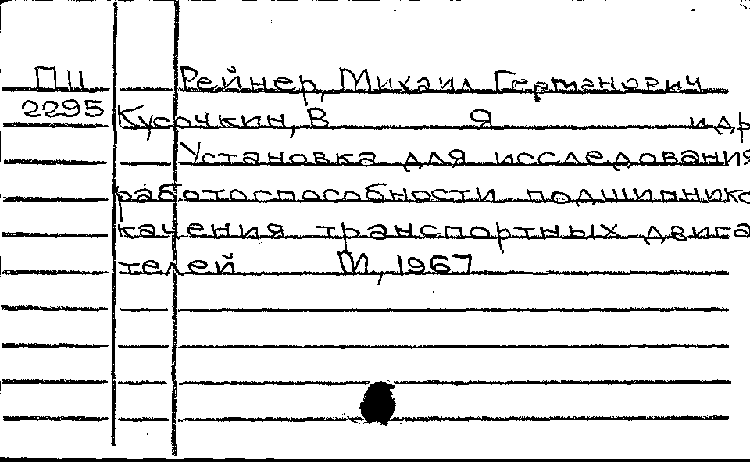 ПII Рейнер, Михаил Германович
2295 Кусочкин, В Я и др
Установка для исследования
работоспособности подшипнико
качения транспортных двига
телей М, 1967